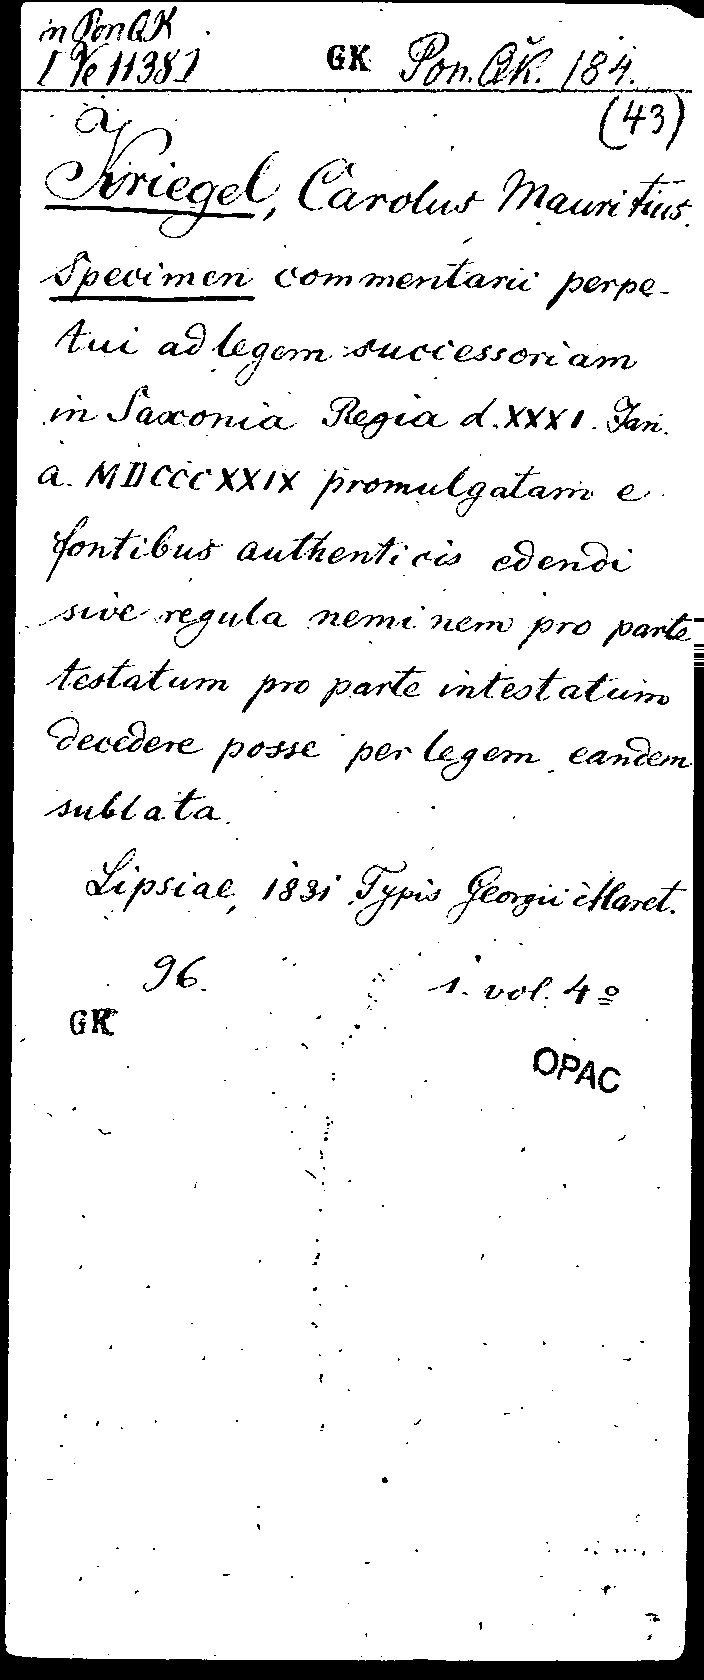 in Pon QK
I Ve 11381
GK Pon. QK. 184.
(43)
Kriegel, Carolus Mauritius.
Specimen commentarii perpe-
tui ad legem successoriam
in Saxonia Regia d. XXXI. Jan.
a. MDCCCXXIX promulgatam e
fontibus authenticis edendi
sive regula neminem pro parte
testatum pro parte intestatum
decedere posse per legem eandem
sublata.
Lipsiae, 1831 Typis Georgii Haret.
96. 1. vol. 4º
GK
OPAC